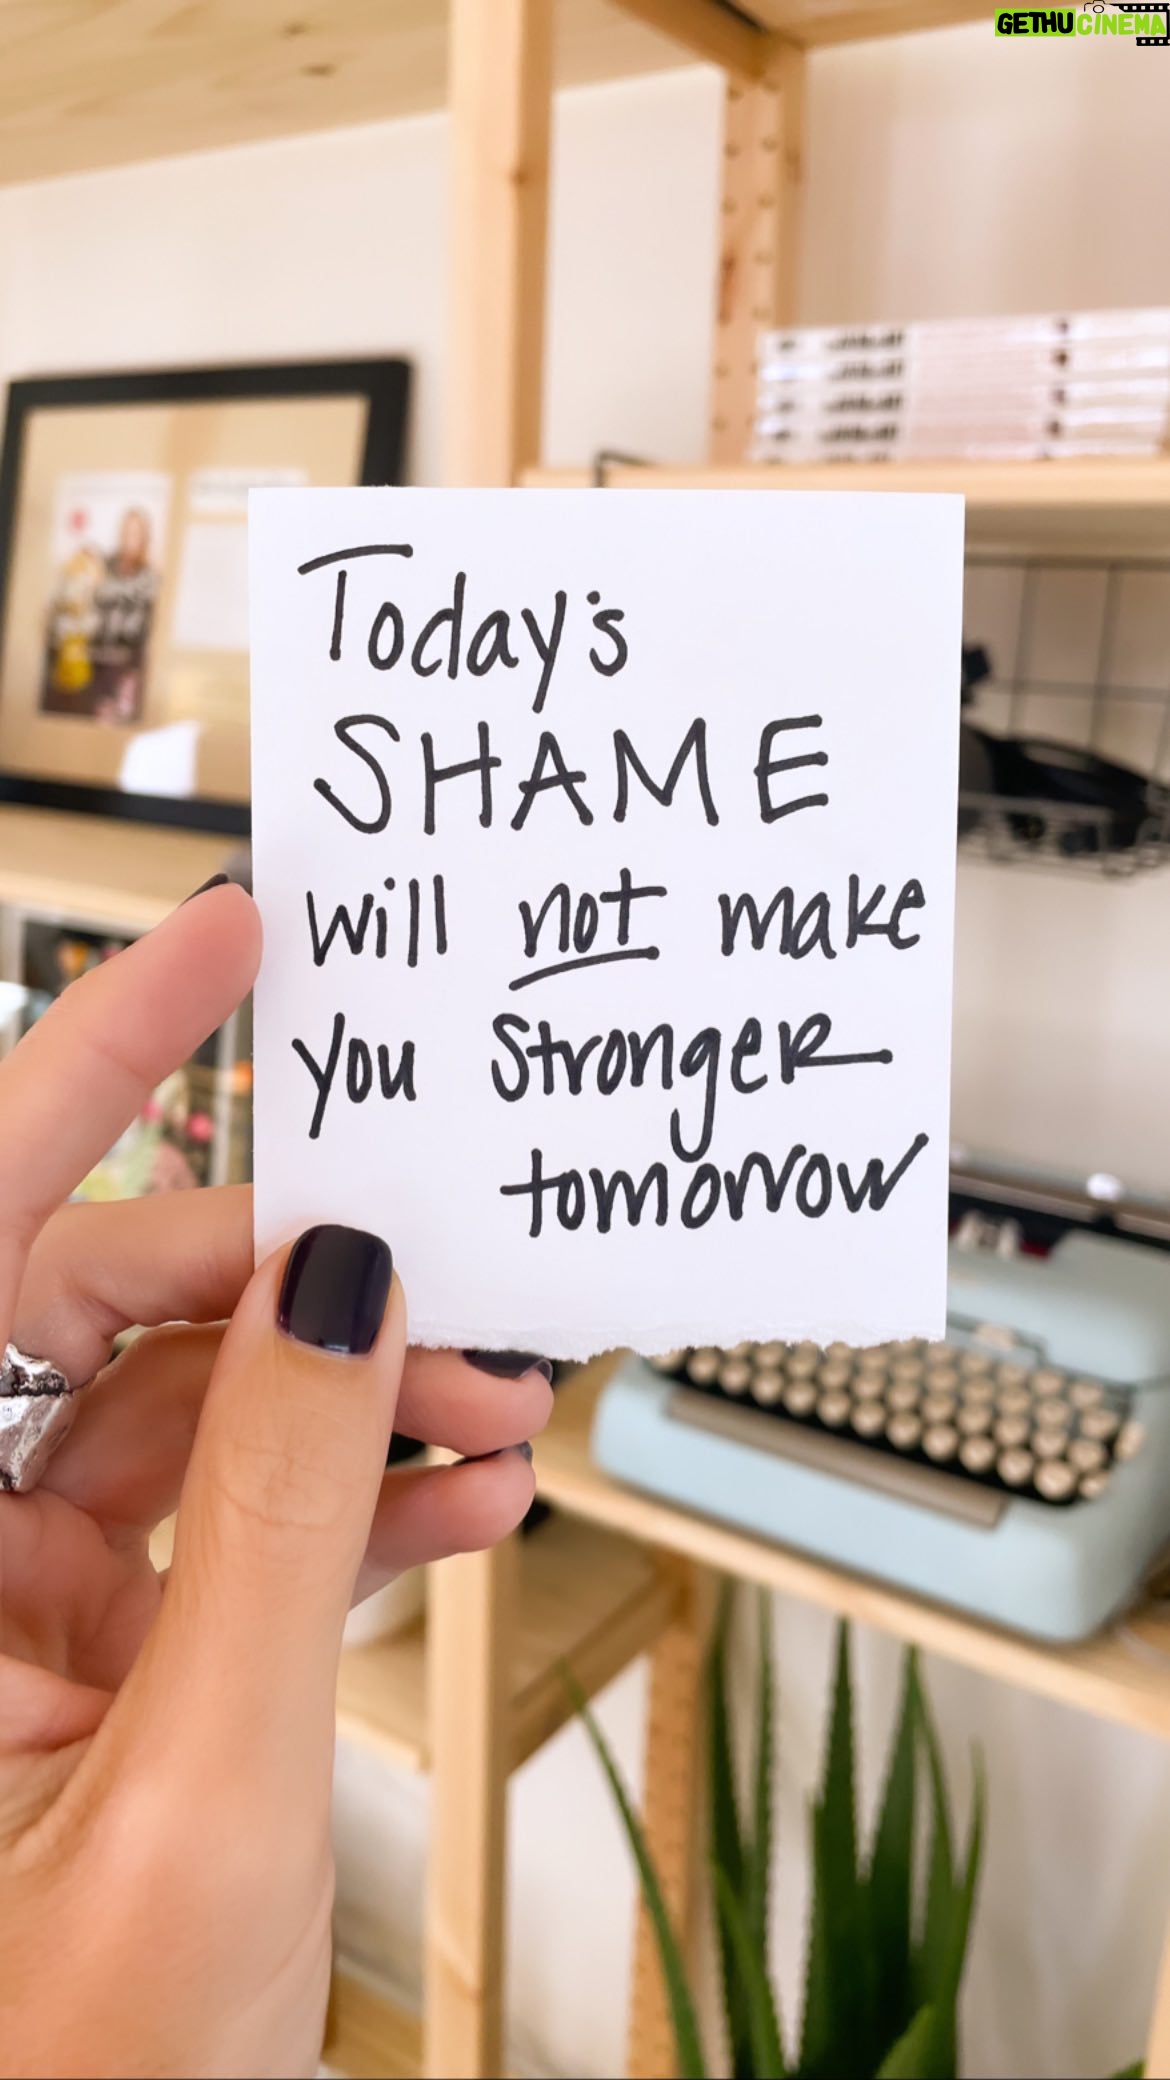 GETHUCINEMA
Today's
SHAME
will not make
you stronger
tomorrow